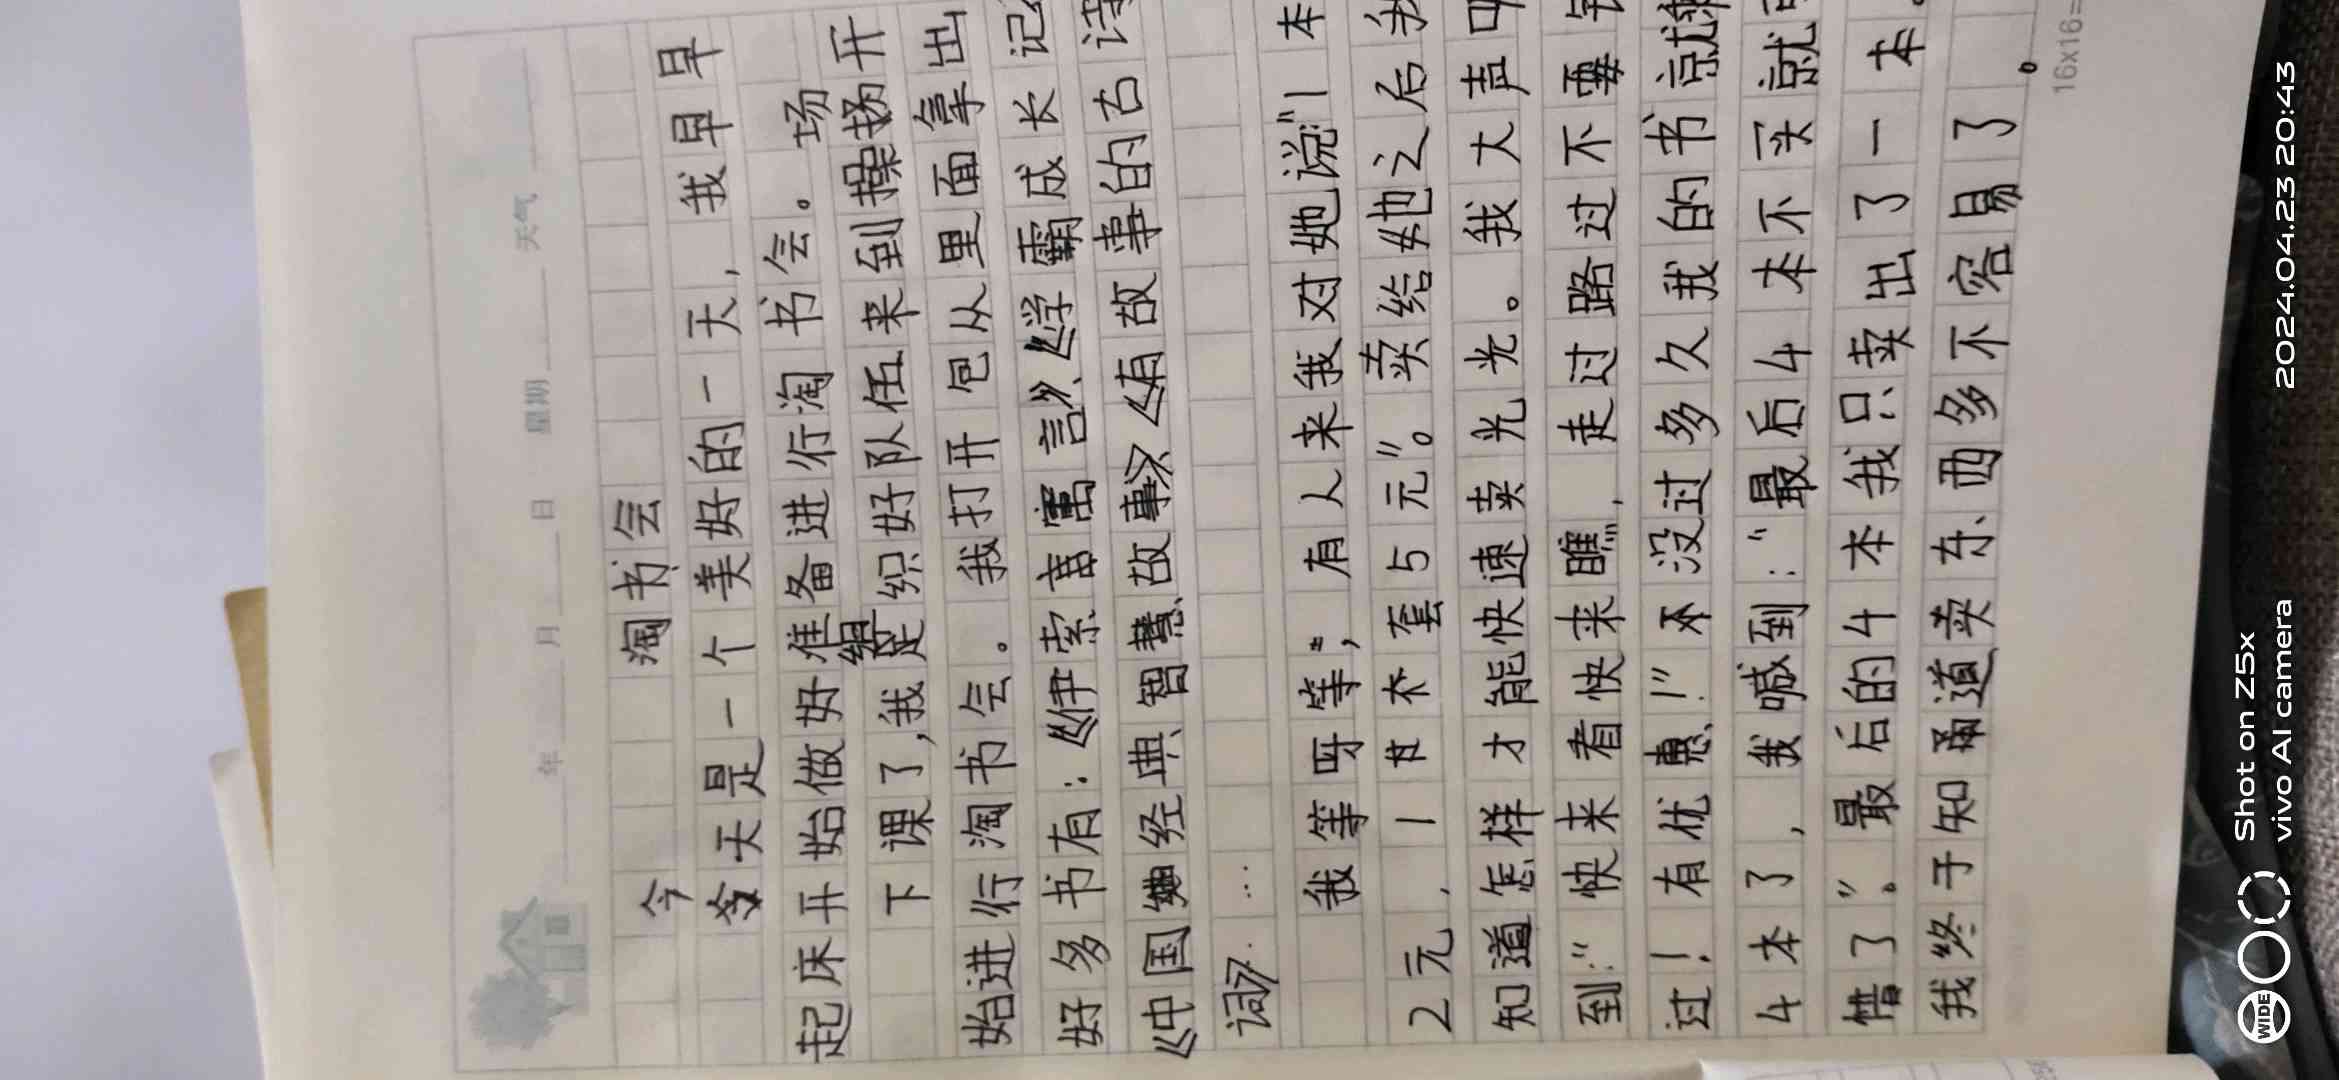 年 月 日 星期 天气
淘书会
今天是一个美好的一天，我早早
起床开始做好准备进行淘书会。
下课了，我们组织好队伍来到操场开
始进行淘书会。我打开包从里面拿出
好多书有：《伊索寓言》、《学霸成长记
《中国经典智慧故事》《有故事的古诗
词》……
我等呀等，有人来我对她说“1本
2元，1世本套5元”。卖给她之后我
知道怎样才能快速卖光光。我大声叫
到：“快来看快来瞧，走过路过不要错
过！有优惠！”不没过多久我的书就剩
4本了，我喊到：“最后4本不买就可
惜了”。最后的4本我只卖出了一本。
我终于知道卖东西多不容易了。
16x16=
Shot on Z5x
vivo AI camera
2024.04.23 20:43
WIDE